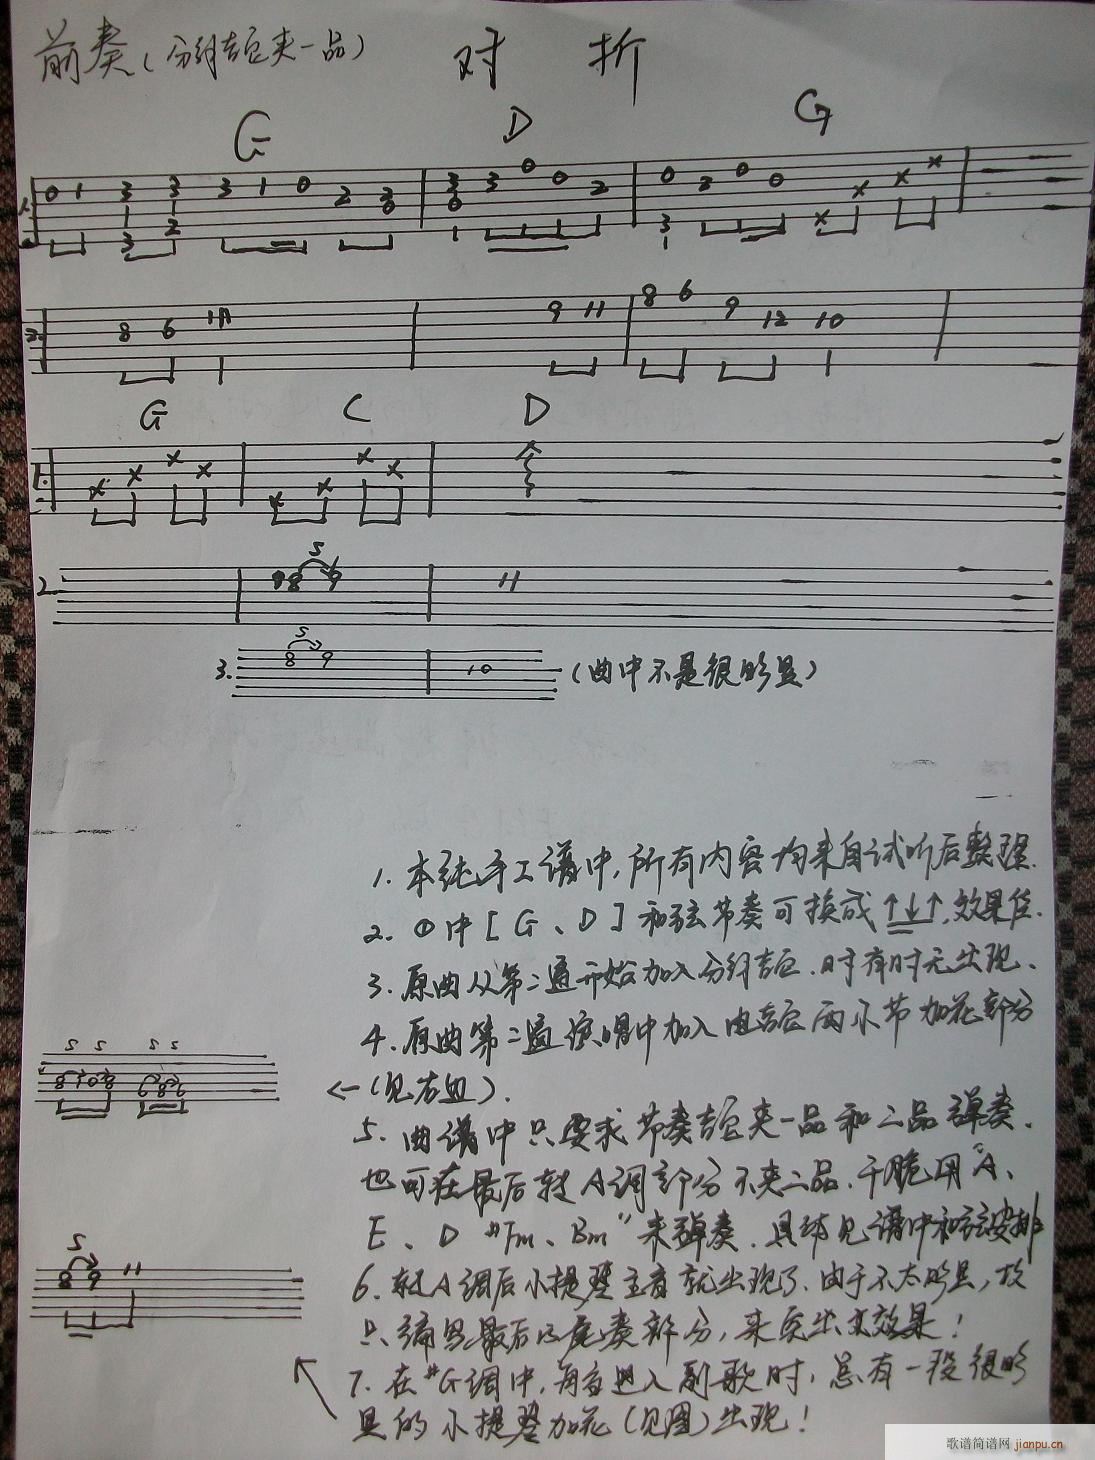 前奏(分解吉它夹一品)
对 折
G D G
1. 0 1 3 3 3 1 0 2 3 3 3 0 0 2 0 2 0 0 x x x x
3 2 0 0 3
2. 8 6 11 9 11 8 6 9 12 10
G C D
1. x x x x x x x x
S
2. 8 8 9 11
S
3. 8 9 10 (曲中不是很明显)
1. 本纯手工谱中,所有内容均来自试听后整理.
2. ①中[G、D]和弦节奏可换成↑↓↑,效果佳.
3. 原曲从第二遍开始加入分解吉它.时有时无出现、
4. 原曲第二遍演唱中加入电吉它两小节加花部分
S S S S
8 10 8 6 8 6
←(见左边).
5. 曲谱中只要求节奏吉它夹一品和二品弹奏.
也可在最后转A调部分不夹二品.干脆用"A、
E、D #Fm、Bm"来弹奏.具体见谱中和弦安排
S
8 9 11
6. 转A调后小提琴主音就出现了.由于不太明显,故
只编写最后的尾奏部分,来突出其效果!
7. 在#G调中,每音进入副歌时,总有一段很明
显的小提琴加花(见图)出现!
歌谱简谱网 jianpu.cn